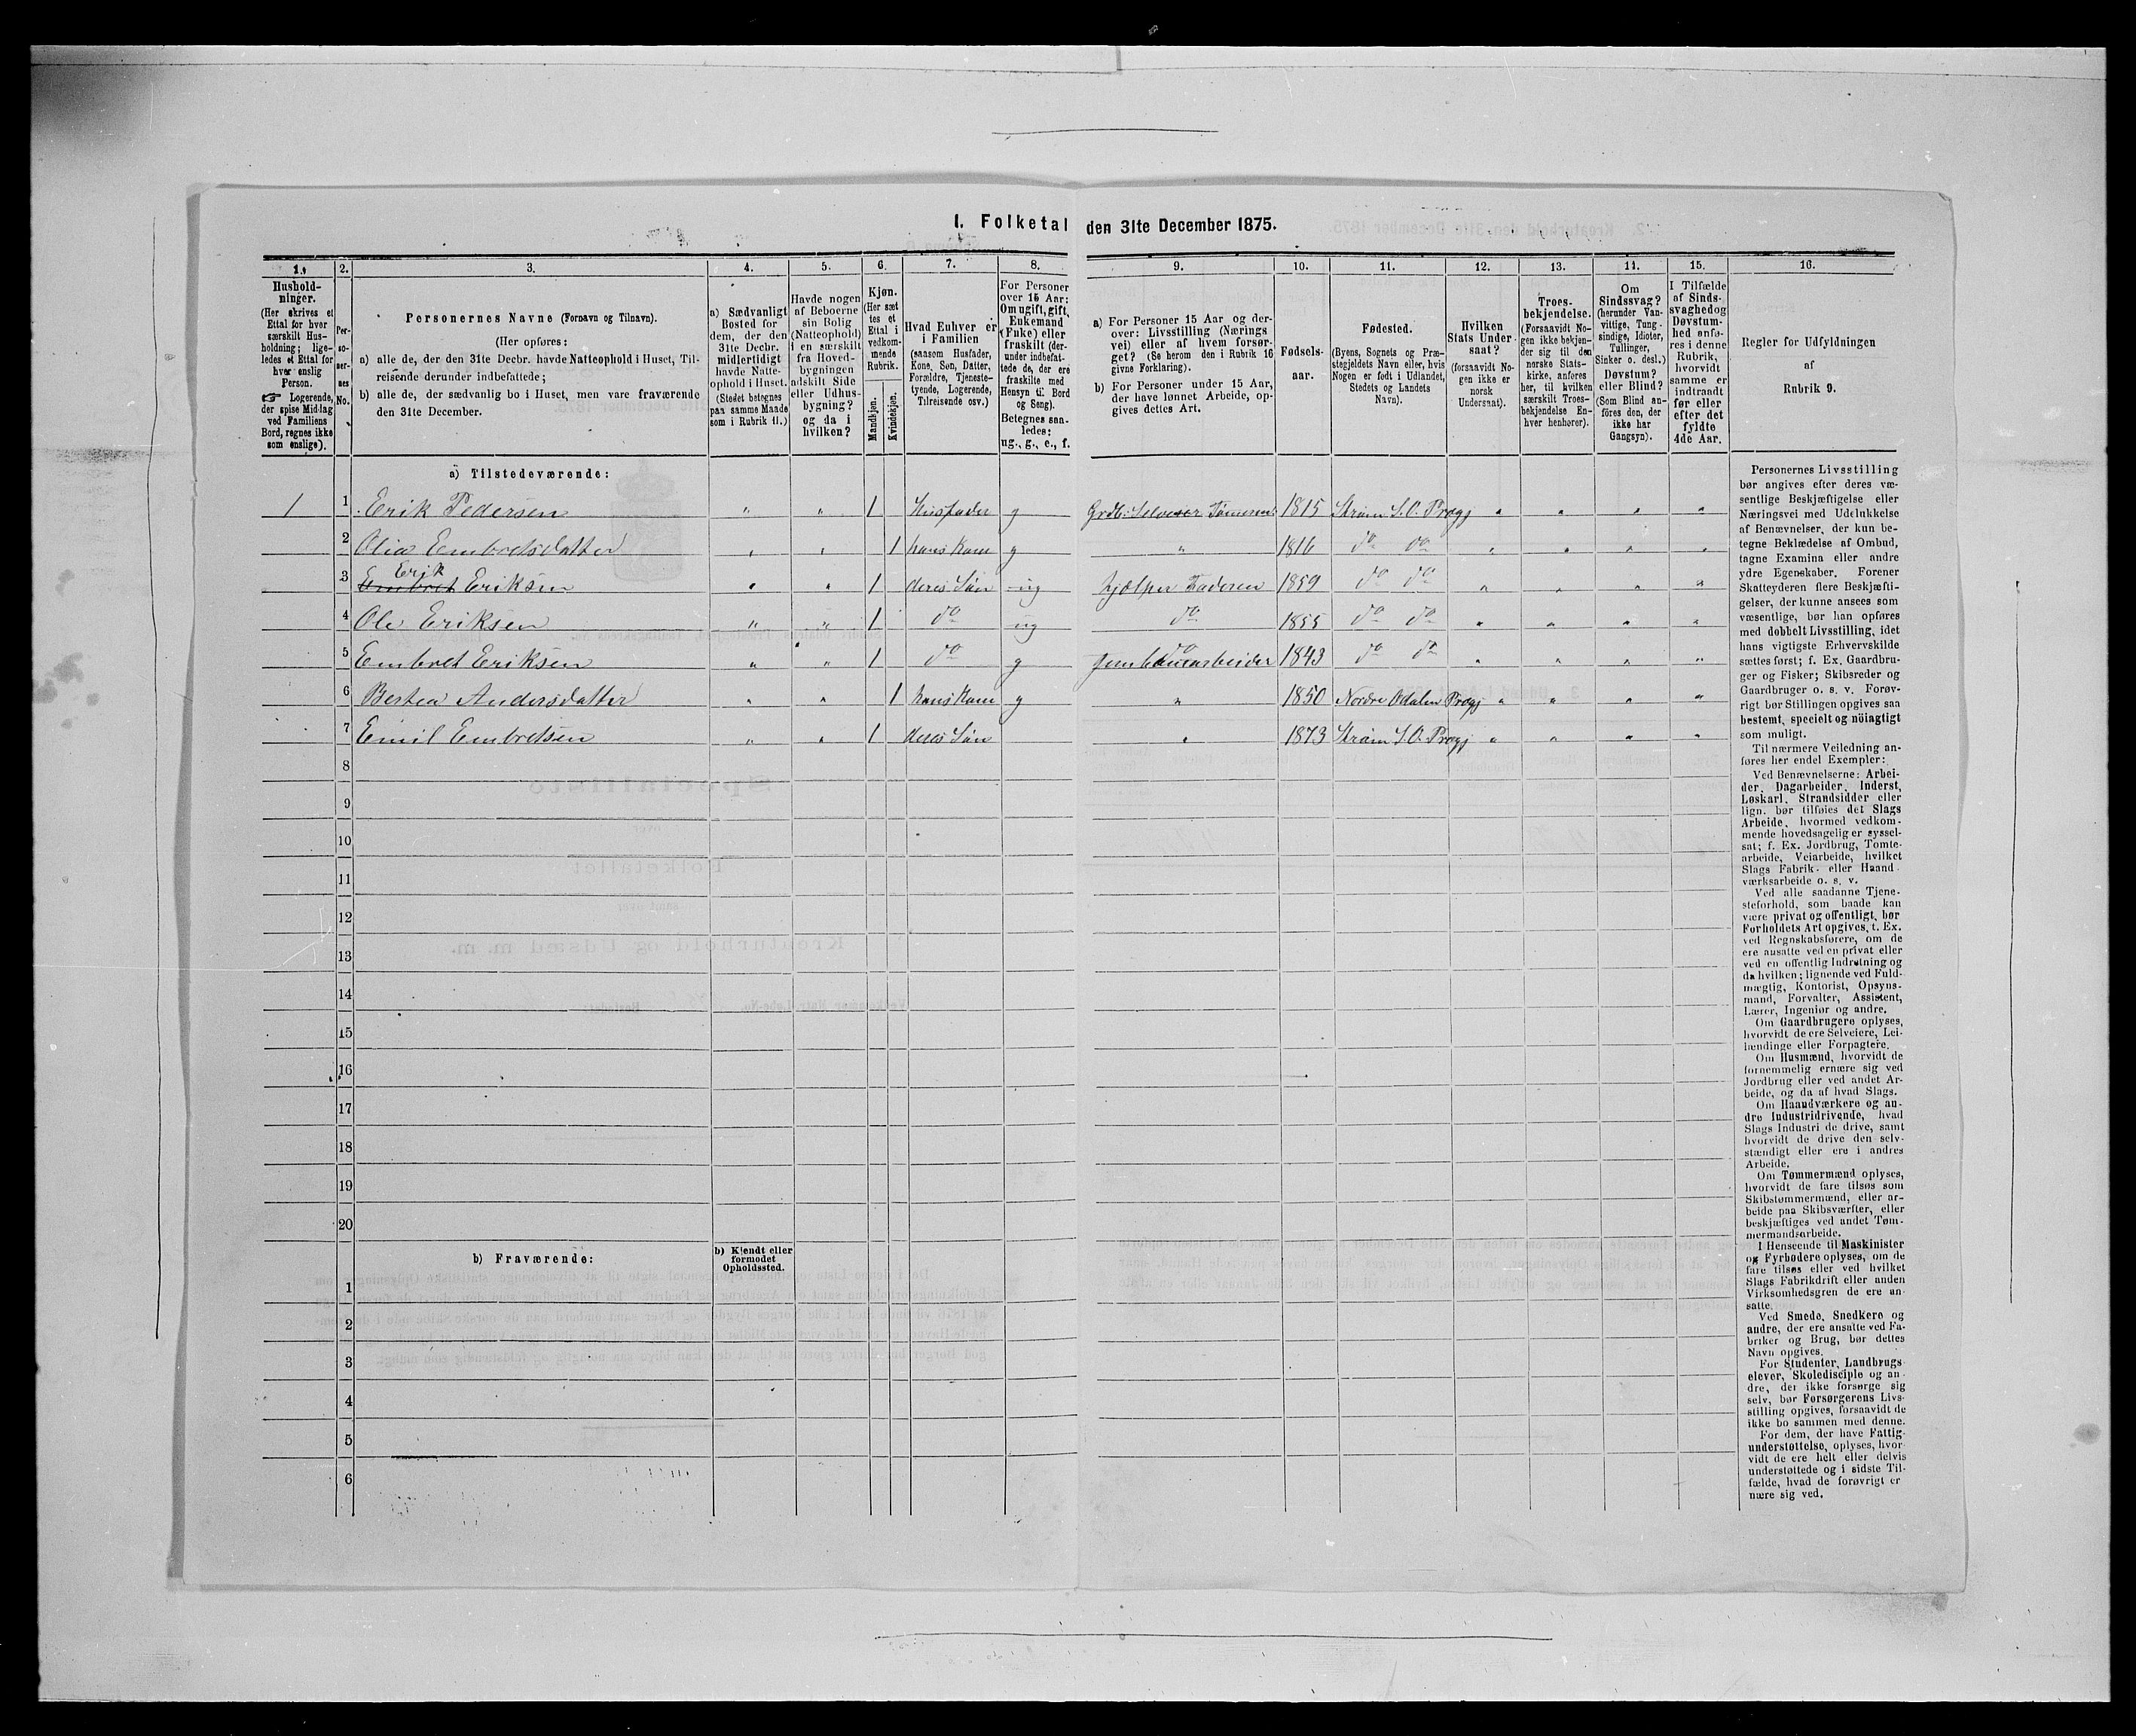 1. Folketal den 31te December 1875.
1. 2. 3. 4. 5. 6. 7. 8. 9. 10. 11. 12. 13. 14. 15. 16.
Husholdninger.
(Her skrives et
Ettal for hver
særskilt Hus-
holdning; lige-
ledes et Ettal for
hver enslig
Person.
Logerende,
der spise Middag
ved Familiens
Bord, regnes ikke
som enslige).
Per-
so-
ner-
nes
No.
Personernes Navne (Fornavn og Tilnavn).
(Her opføres:
a) alle de, der den 31te Decbr. havde Natteophold i Huset, Til-
reisende derunder indbefattede;
b) alle de, der sædvanlig bo i Huset, men vare fraværende
den 31te December.
a) Sædvanligt
Bosted for
dem, der den
31te Decbr.
midlertidigt
havde Natte-
ophold i Huset.
(Stedet betegnes
paa samme Maade
som i Rubrik 11.)
Havde nogen
af Beboerne
sin Bolig
(Natteophold)
i en særskilt
fra Hoved-
bygningen
adskilt Side
eller Udhus-
bygning?
og da i
hvilken?
Kjøn.
(Her sæt
tes et
Ettal i
vedkom-
mende
Rubrik.
Mandkjøn.
Kvindekjøn.
Hvad Enhver er
i Familien
(saasom Husfader,
Kone, Søn, Datter,
Forældre, Tjeneste-
tyende, Logerende,
Tilreisende osv.)
For Personer
over 15 Aar:
Om ugift, gift,
Enkemand
(Enke) eller
fraskilt (der-
under indbefat-
tede de, der ere
fraskilte med
Hensyn til Bord
og Seng).
Betegnes saa-
ledes:
ug., g., e., f.
a) For Personer 15 Aar og der-
over: Livsstilling (Nærings
vei) eller af hvem forsør-
get? (Se herom den i Rubrik 16
givne Forklaring).
b) For Personer under 15 Aar,
der have lønnet Arbeide, op-
gives dettes Art.
Fødsels-
aar.
Fødested.
(Byens, Sognets og Præ-
stegjeldets Navn eller, hvis
Nogen er født i Udlandet,
Stedets og Landets
Navn).
Hvilken
Stats Under-
saat?
(forsaavidt No-
gen ikke er
norsk
Undersaat).
Troes-
bekjendelse.
(Forsaavidt No-
gen ikke bekjen-
der sig til den
norske Stats-
kirke, anføres
her, til hvilken
særskilt Troes-
bekjendelse En-
hver henhører).
Om
Sindssvag?
(herunder Van-
vittige, Tung-
sindige, Idioter,
Tullinger,
Sinker o. desl.)
Døvstum?
eller Blind?
(Som Blind an-
föres den, der
ikke har
Gangsyn).
I Tilfælde
af Sinds-
svaghed og
Døvstum-
hed anfø-
res i denne
Rubrik,
hvorvidt
samme er
indtraadt
før eller
efter det
fyldte
4de Aar.
Regler for Udfyldningen
af
Rubrik 9.
a) Tilstedeværende:
1 1 Erik Pedersen " " 1 Husfader g Grdb: Selveier 1815 Strøm S. O. Prægj " " " "
2 Olia Embretsdatter " " 1 hans Kone g " 1816 do do " " " "
Erik
3 Embret Eriksen " " 1 deres Søn ug hjælper Faderen 1859 do do " " " "
4 Ole Eriksen " " 1 do ug do 1855 do do " " " "
5 Embret Eriksen " " 1 do g do Jernbanearbeider 1843 do do " " " "
6 Bertea Andersdatter " " 1 hans Kone g " 1850 Nordre Odalen Prægj " " " "
7 Emil Embretsen " " 1 deres Søn " 1873 Strøm S. O. Prægj " " " "
8
9
10
11
12
13
14
15
16
17
18
19
20
b) Fraværende:
b) Kjendt eller
formodet
Opholdssted.
1
2
3
4
5
6
Personernes Livsstilling
bør angives efter deres væ-
sentlige Beskjæftigelse eller
Næringsvei med Udelukkelse
af Benævnelser, der kun be-
tegne Beklædelse af Ombud,
tagne Examina eller andre
ydre Egenskaber. Forener
Skatteyderen flere Beskjæfti-
gelser, der kunne ansees som
væsentlige, bør han opføres
med dobbelt Livsstilling, idet
hans vigtigste Erhvervskilde
sættes først; f. Ex. Gaardbru-
ger og Fisker; Skibsreder og
Gaardbruger o. s. v. Forøv-
rigt bør Stillingen opgives saa
bestemt, specielt og nöiagtigt
som muligt.
Til nærmere Veiledning an-
føres her endel Exempler:
Ved Benævnelserne: Arbei-
der, Dagarbeider, Inderst,
Løskarl, Strandsidder eller
lign. bør tilføies det Slags
Arbeide, hvormed vedkom-
mende hovedsagelig er syssel-
sat; f. Ex. Jordbrug, Tomte-
arbeide, Veiarbeide, hvilket
Slags Fabrik- eller Haand-
værksarbeide o. s. v.
Ved alle saadanne Tjene-
steforhold, som baade kan
være privat og offentligt, bør
Forholdets Art opgives, t. Ex.
ved Regnskabsførere, om de
ere ansatte ved en privat eller
ved en offentlig Indretning og
da hvilken; lignende ved Fuld-
mægtig, Kontorist, Opsyns-
mand, Forvalter, Assistent,
Lærer, Ingeniør og andre.
Om Gaardbrugere oplyses,
hvorvidt de ere Selveiere, Lei-
lændinge eller Forpagtere.
Om Husmænd, hvorvidt de
fornemmelig ernære sig ved
Jordbrug eller ved andet Ar-
beide, og da af hvad Slags.
Om Haandværkere og an-
dre Industridrivende, hvad
Slags Industri de drive, samt
hvorvidt de drive den selv-
stændigt eller ere i andres
Arbeide.
Om Tømmermænd oplyses,
hvorvidt de fare tilsøs som
Skibstømmermænd, eller ar-
beide paa Skibsværfter, eller
beskjæftiges ved andet Tøm-
mermandsarbeide.
I Henseende til Maskinister
og Fyrbødere oplyses, om de
fare tilsøs eller ved hvilket
Slags Fabrikdrift eller anden
Virksomhedsgren de ere an-
satte.
Ved Smede, Snedkere og
andre, der ere ansatte ved Fa-
briker og Brug, bør dettes
Navn opgives.
For Studenter, Landbrugs-
elever, Skoledisciple og an-
dre, der ikke forsørge sig
selv, bør Forsørgerens Livs-
stilling opgives, forsaavidt de
ikke bo sammen med denne.
For dem, der have Fattig-
understøttelse, oplyses, hvor-
vidt de ere helt eller delvis
understøttede og i sidste Til-
fælde, hvad de forøvrigt er-
nære sig ved.